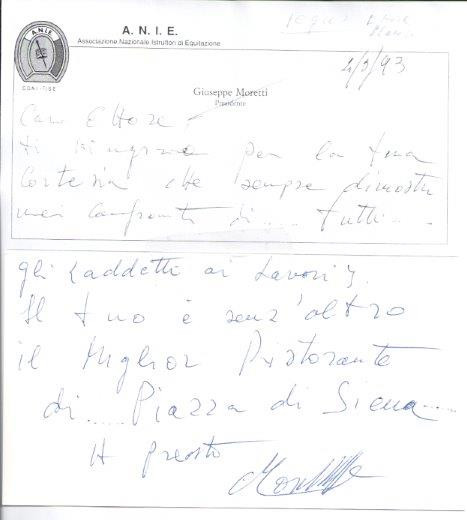 A. N. I. E.
Associazione Nazionale Istruttori di Equitazione
ANIE
CONI-FISE
segue
2/3/93
Giuseppe Moretti
Presidente
Caro Ettore,
ti ringrazio per la tua
cortesia che sempre dimostri
nei confronti di..... tutti....
gli "addetti ai lavori".
Il tuo è senz'altro
il Miglior Ristorante
di..... Piazza di Siena.....
A presto